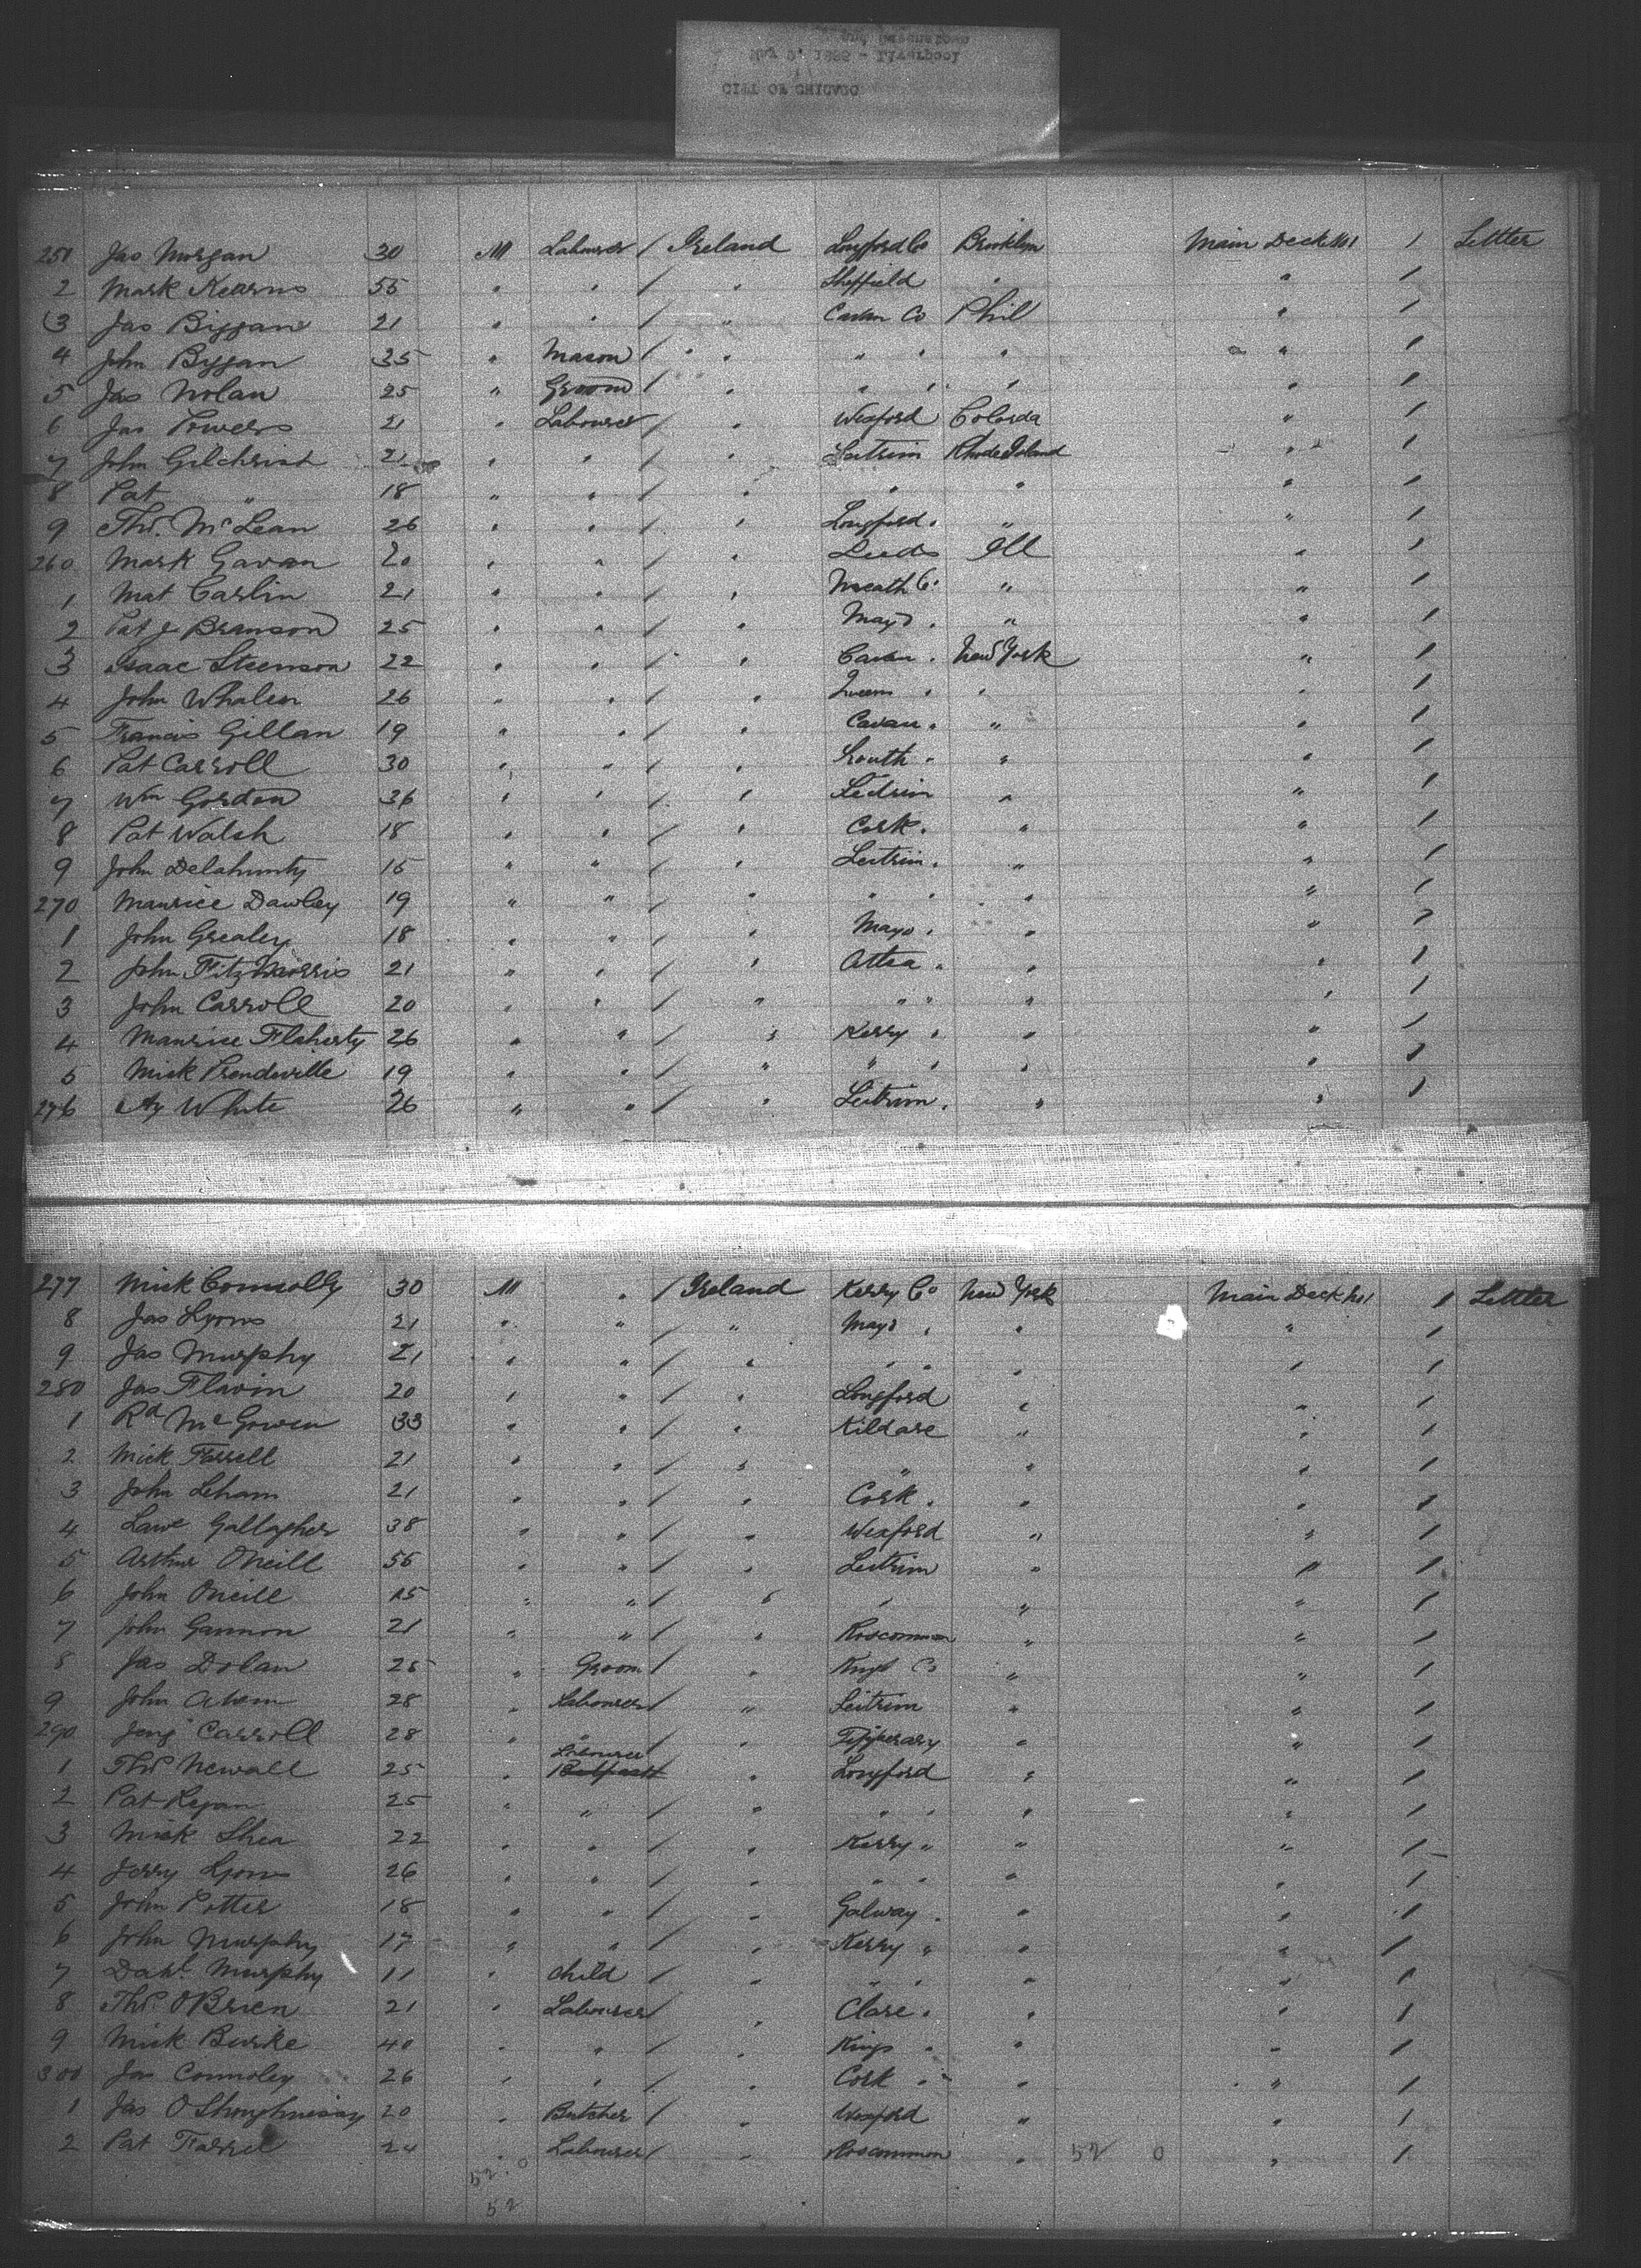 CITY OF CHICAGO
1888 - Liverpool
251 Jas Morgan 30 M Labourer / Ireland Longford Co Brooklyn Main Deck No1 1 Settler
2 Mark Kearns 55 " " / " Sheffield " " 1
3 Jas Biggan 21 " " / " Cavan Co Phil " 1
4 John Biggan 35 " Mason / " " " " " " 1
5 Jas Nolan 25 " Groom / " " " " " 1
6 Jas Powers 21 " Labourer / " Wexford Colorda " 1
7 John Gilchrist 21 " " / " Leitrim Rhode Island " 1
8 Pat " 18 " " / " " " " 1
9 Thos. McLean 26 " " / " Longford " " " 1
260 Mark Gavan 20 " " / " Leeds Ill " 1
1 Mat Carlin 21 " " / " Meath Co " " 1
2 Pat J Branson 25 " " / " Mayo " " " 1
3 Isaac Steenson 22 " " / " Cavan " New York " 1
4 John Whalen 26 " " / " Queens " " " 1
5 Francis Gillan 19 " " / " Cavan " " " 1
6 Pat Carroll 30 " " / " Louth " " " 1
7 Wm Gordon 36 " " / " Leitrim " " 1
8 Pat Walsh 18 " " / " Cork " " " 1
9 John Delahunty 15 " " / " Leitrim " " " 1
270 Maurice Dawley 19 " " / " " " " " 1
1 John Grealey 18 " " / " Mayo " " " 1
2 John FitzMorris 21 " " / " " " " 1
3 John Carroll 20 " " / " " " " " 1
4 Maurice Flaherty 26 " " / " Kerry " " " 1
5 Mick Prendiville 19 " " / " " " " " 1
276 White 26 " " / " Leitrim " " " 1
277 Mick Connolly 30 M " / Ireland Kerry Co New York Main Deck No1 1 Settler
8 Jas Lyons 21 " " / " Mayo " " " 1
9 Jas Murphy 21 " " / " " " " " 1
280 Jas Flavin 20 " " / " Longford " " 1
1 Rd McGowen 33 " " / " Kildare " " 1
2 Mick Farrell 21 " " / " " " " 1
3 John Leham 21 " " / " Cork " " " 1
4 Lawe Gallagher 38 " " / " Wexford " " 1
5 Arthur Oneill 56 " " / " Leitrim " " 1
6 John Oneill 15 " " / " " " " 1
7 John Gannon 21 " " / " Roscommon " " 1
8 Jas Dolan 25 " Groom / " Kings Co " " 1
9 John Ahern 28 " Labourer / " Leitrim " " 1
290 Carroll 28 " " / " Tipperary " " 1
1 Thos Newall 25 " Labourer " Longford " " 1
2 Pat Regan 25 " " / " " " " " 1
3 Mick Shea 22 " " / " Kerry " " " 1
4 Jerry Lyons 26 " " / " " " " " 1
5 John Potter 18 " " / " Galway " " " 1
6 John Murphy 17 " " / " Kerry " " " 1
7 Danl. Murphy 11 " Child / " " " " " 1
8 Thos OBrien 21 " Labourer / " Clare " " " 1
9 Mick Burke 40 " " / " Kings " " " 1
300 Jas Connoley 26 " " / " Cork " " " 1
1 Jas OShaughnessy 20 " Butcher / " Wexford " " 1
2 Pat Farrel 24 " Labourer / " Roscommon " 52 0 " 1
52 0
52